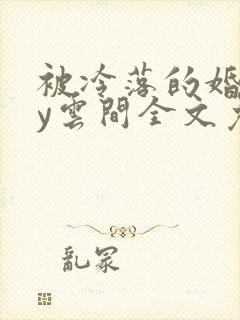 被冷落的婚
y雲間全文免
亂冢